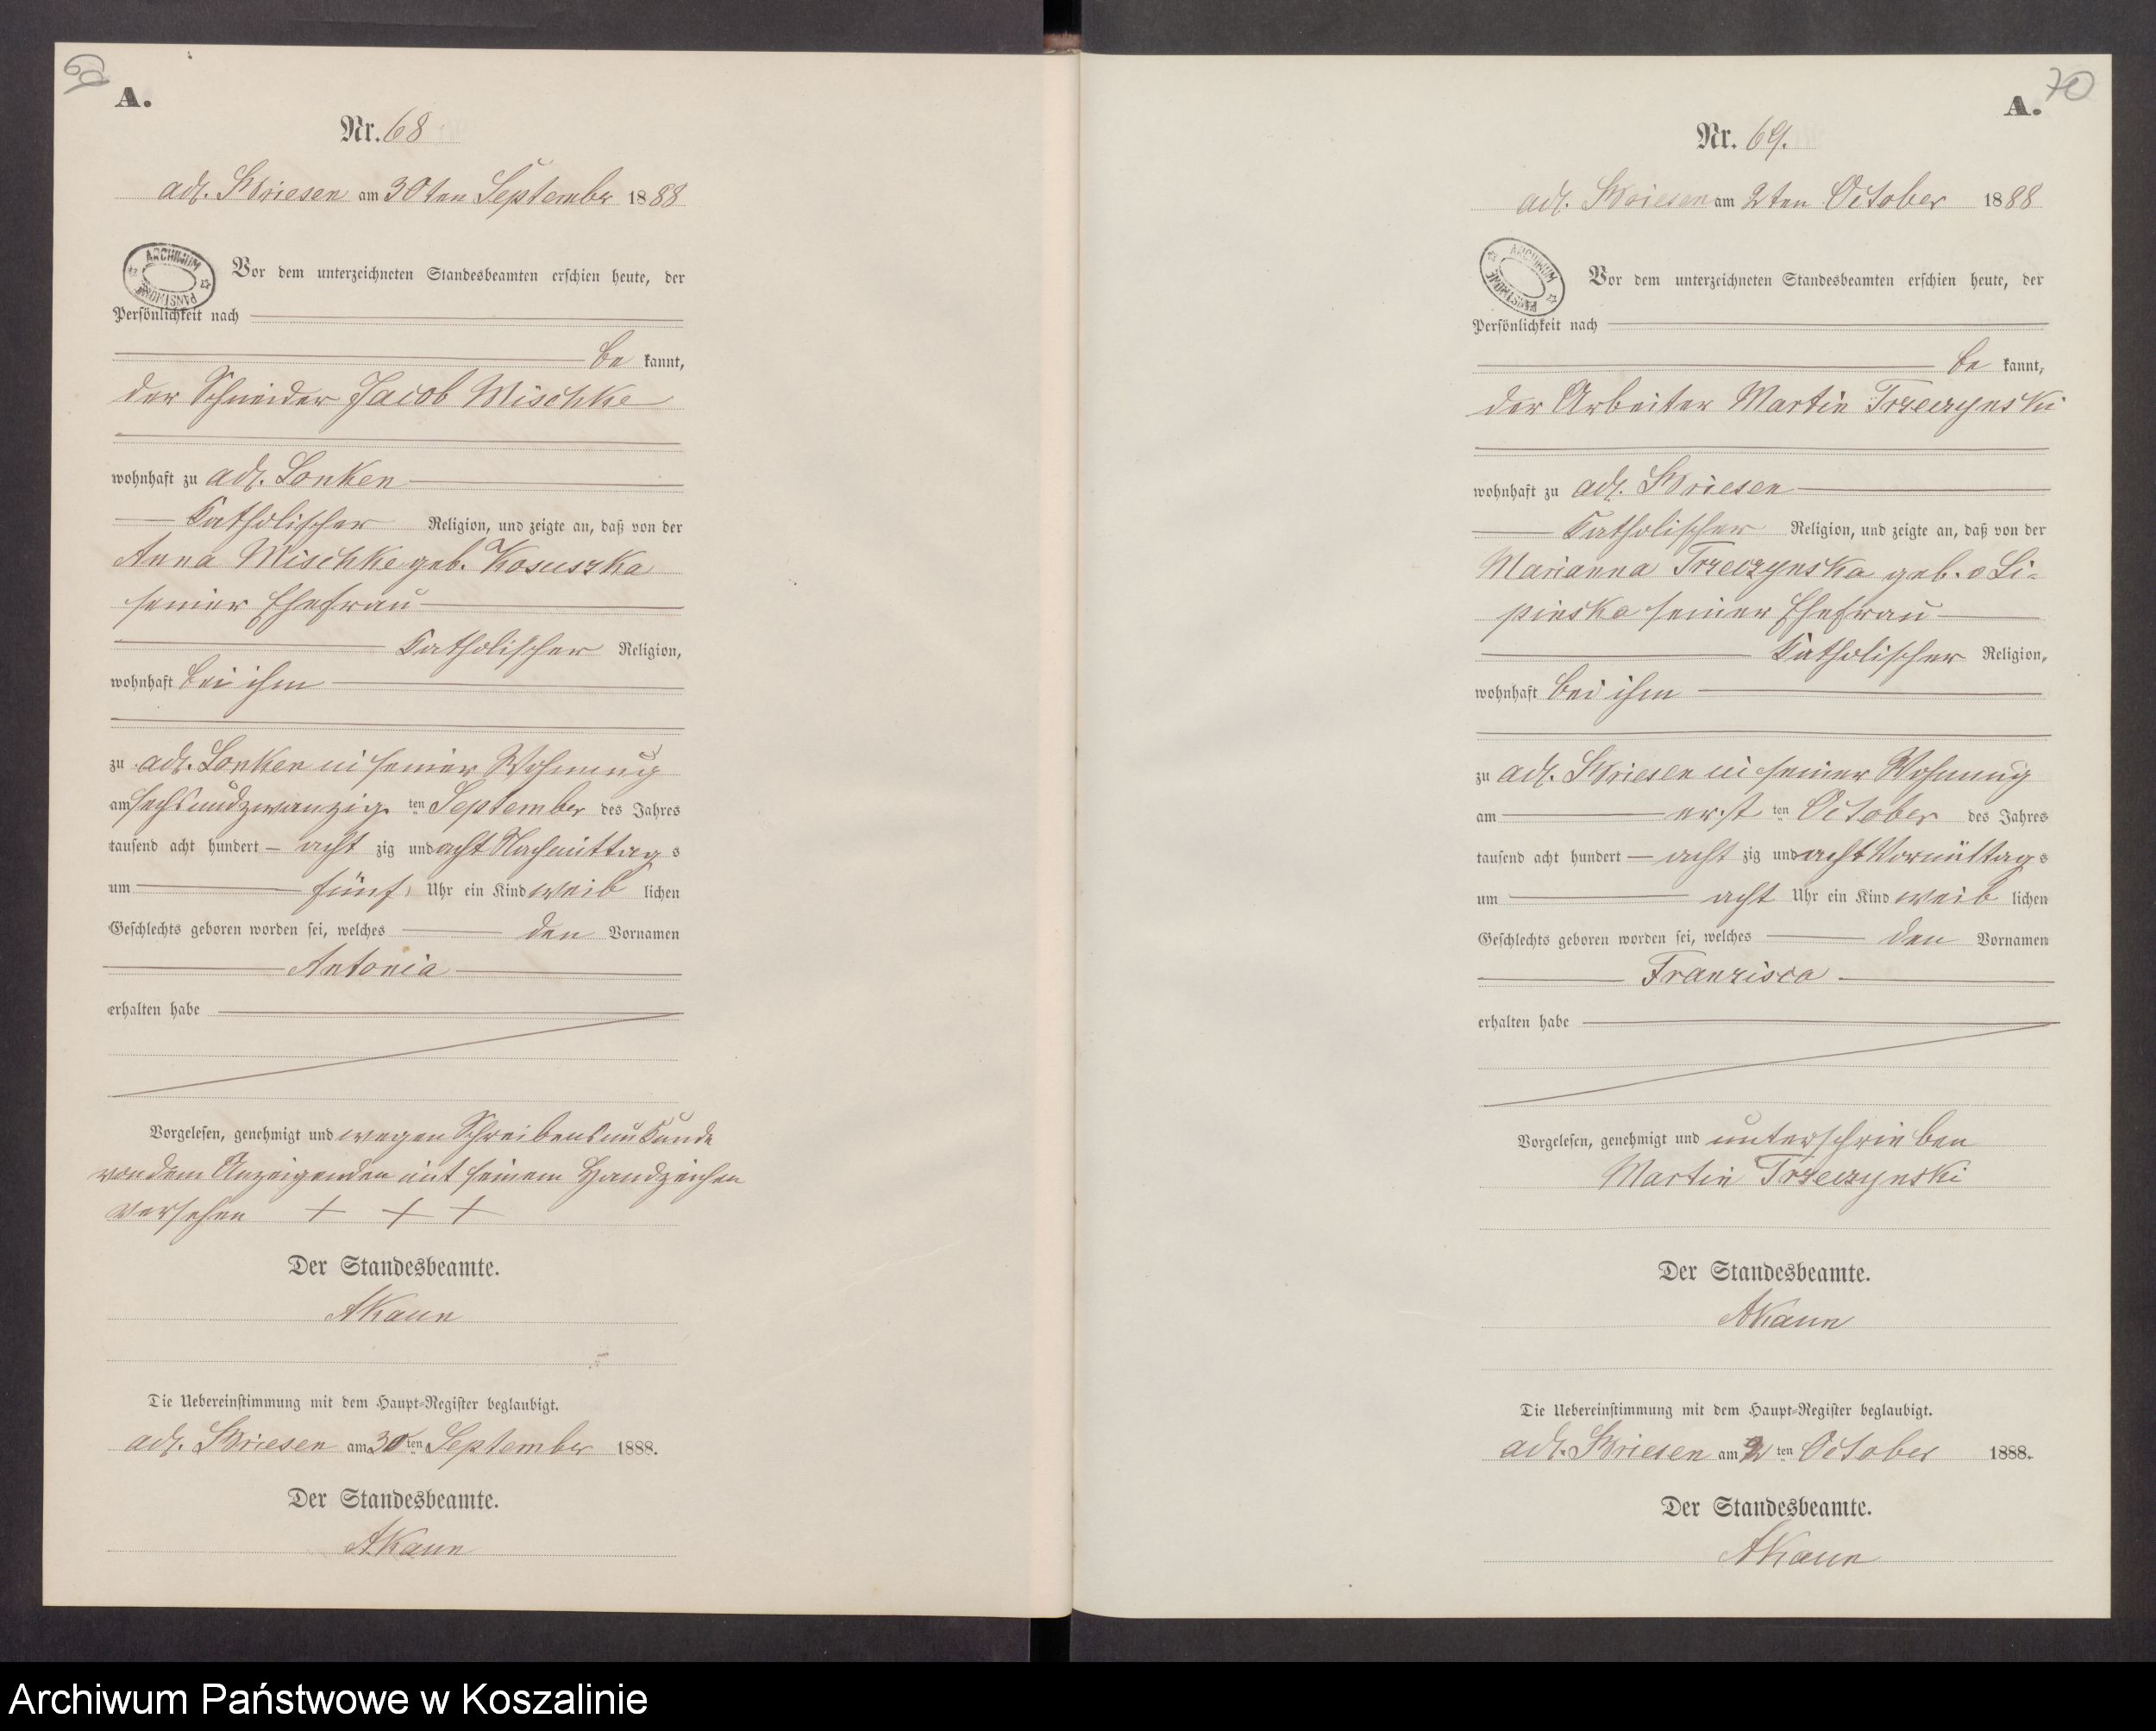 69
A.
Nr. 68
adl. Briesen am 30ten September 1888
ARCHIWUM PAŃSTWOWE
Vor dem unterzeichneten Standesbeamten erschien heute, der
Persönlichkeit nach
be kannt,
der Schneider Jacob Mischke
wohnhaft zu adl. Lonken
Katholischer Religion, und zeigte an, daß von der
Anna Mischke geb. Kosuszka
seiner Ehefrau
Katholischer Religion,
wohnhaft bei ihm
zu adl. Lonken in seiner Wohnung
am sechsundzwanzig ten September des Jahres
tausend acht hundert acht zig und acht Nachmittag s
um fünf Uhr ein Kind weib lichen
Geschlechts geboren worden sei, welches den Vornamen
Antonia
erhalten habe
Vorgelesen, genehmigt und wegen Schreibensunkunde
von dem Anzeigenden mit seinem Handzeichen
versehen + + +
Der Standesbeamte.
AKaun
Die Uebereinstimmung mit dem Haupt-Register beglaubigt.
adl. Briesen am 30 ten September 1888.
Der Standesbeamte.
AKaun
70
A.
Nr. 69.
adl. Briesen am 2ten October 1888
ARCHIWUM PAŃSTWOWE
Vor dem unterzeichneten Standesbeamten erschien heute, der
Persönlichkeit nach
be kannt,
der Arbeiter Martin Trzeczynski
wohnhaft zu adl. Briesen
Katholischer Religion, und zeigte an, daß von der
Marianna Trzeczynska geb. v Li-
pinska seiner Ehefrau
Katholischer Religion,
wohnhaft bei ihm
zu adl. Briesen in seiner Wohnung
am erst ten October des Jahres
tausend acht hundert acht zig und acht Vormittag s
um acht Uhr ein Kind weib lichen
Geschlechts geboren worden sei, welches den Vornamen
Franzisca
erhalten habe
Vorgelesen, genehmigt und unterschrieben
Martin Trzeczynski
Der Standesbeamte.
AKaun
Die Uebereinstimmung mit dem Haupt-Register beglaubigt.
adl. Briesen am 2 ten October 1888.
Der Standesbeamte.
AKaun
Archiwum Państwowe w Koszalinie